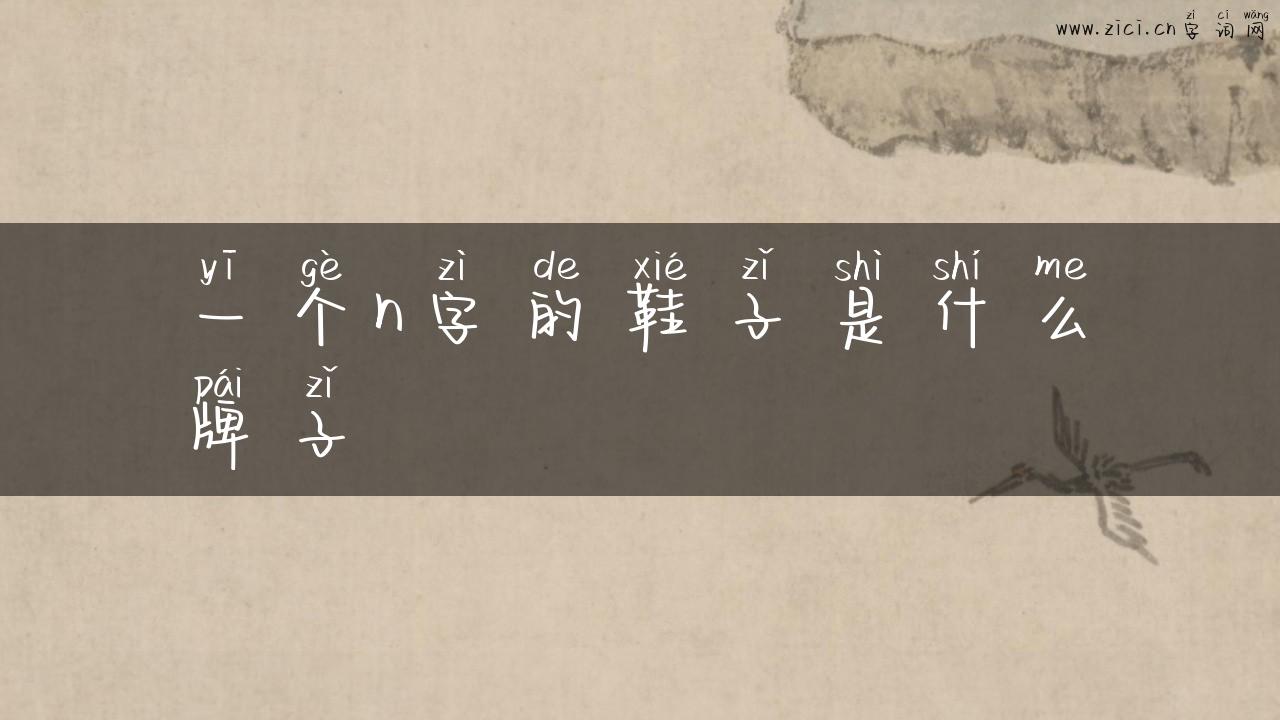 zì cí wǎng
www.zici.cn字词网
yī gè zì de xié zǐ shì shí me
一个n字的鞋子是什么
pái zǐ
牌子